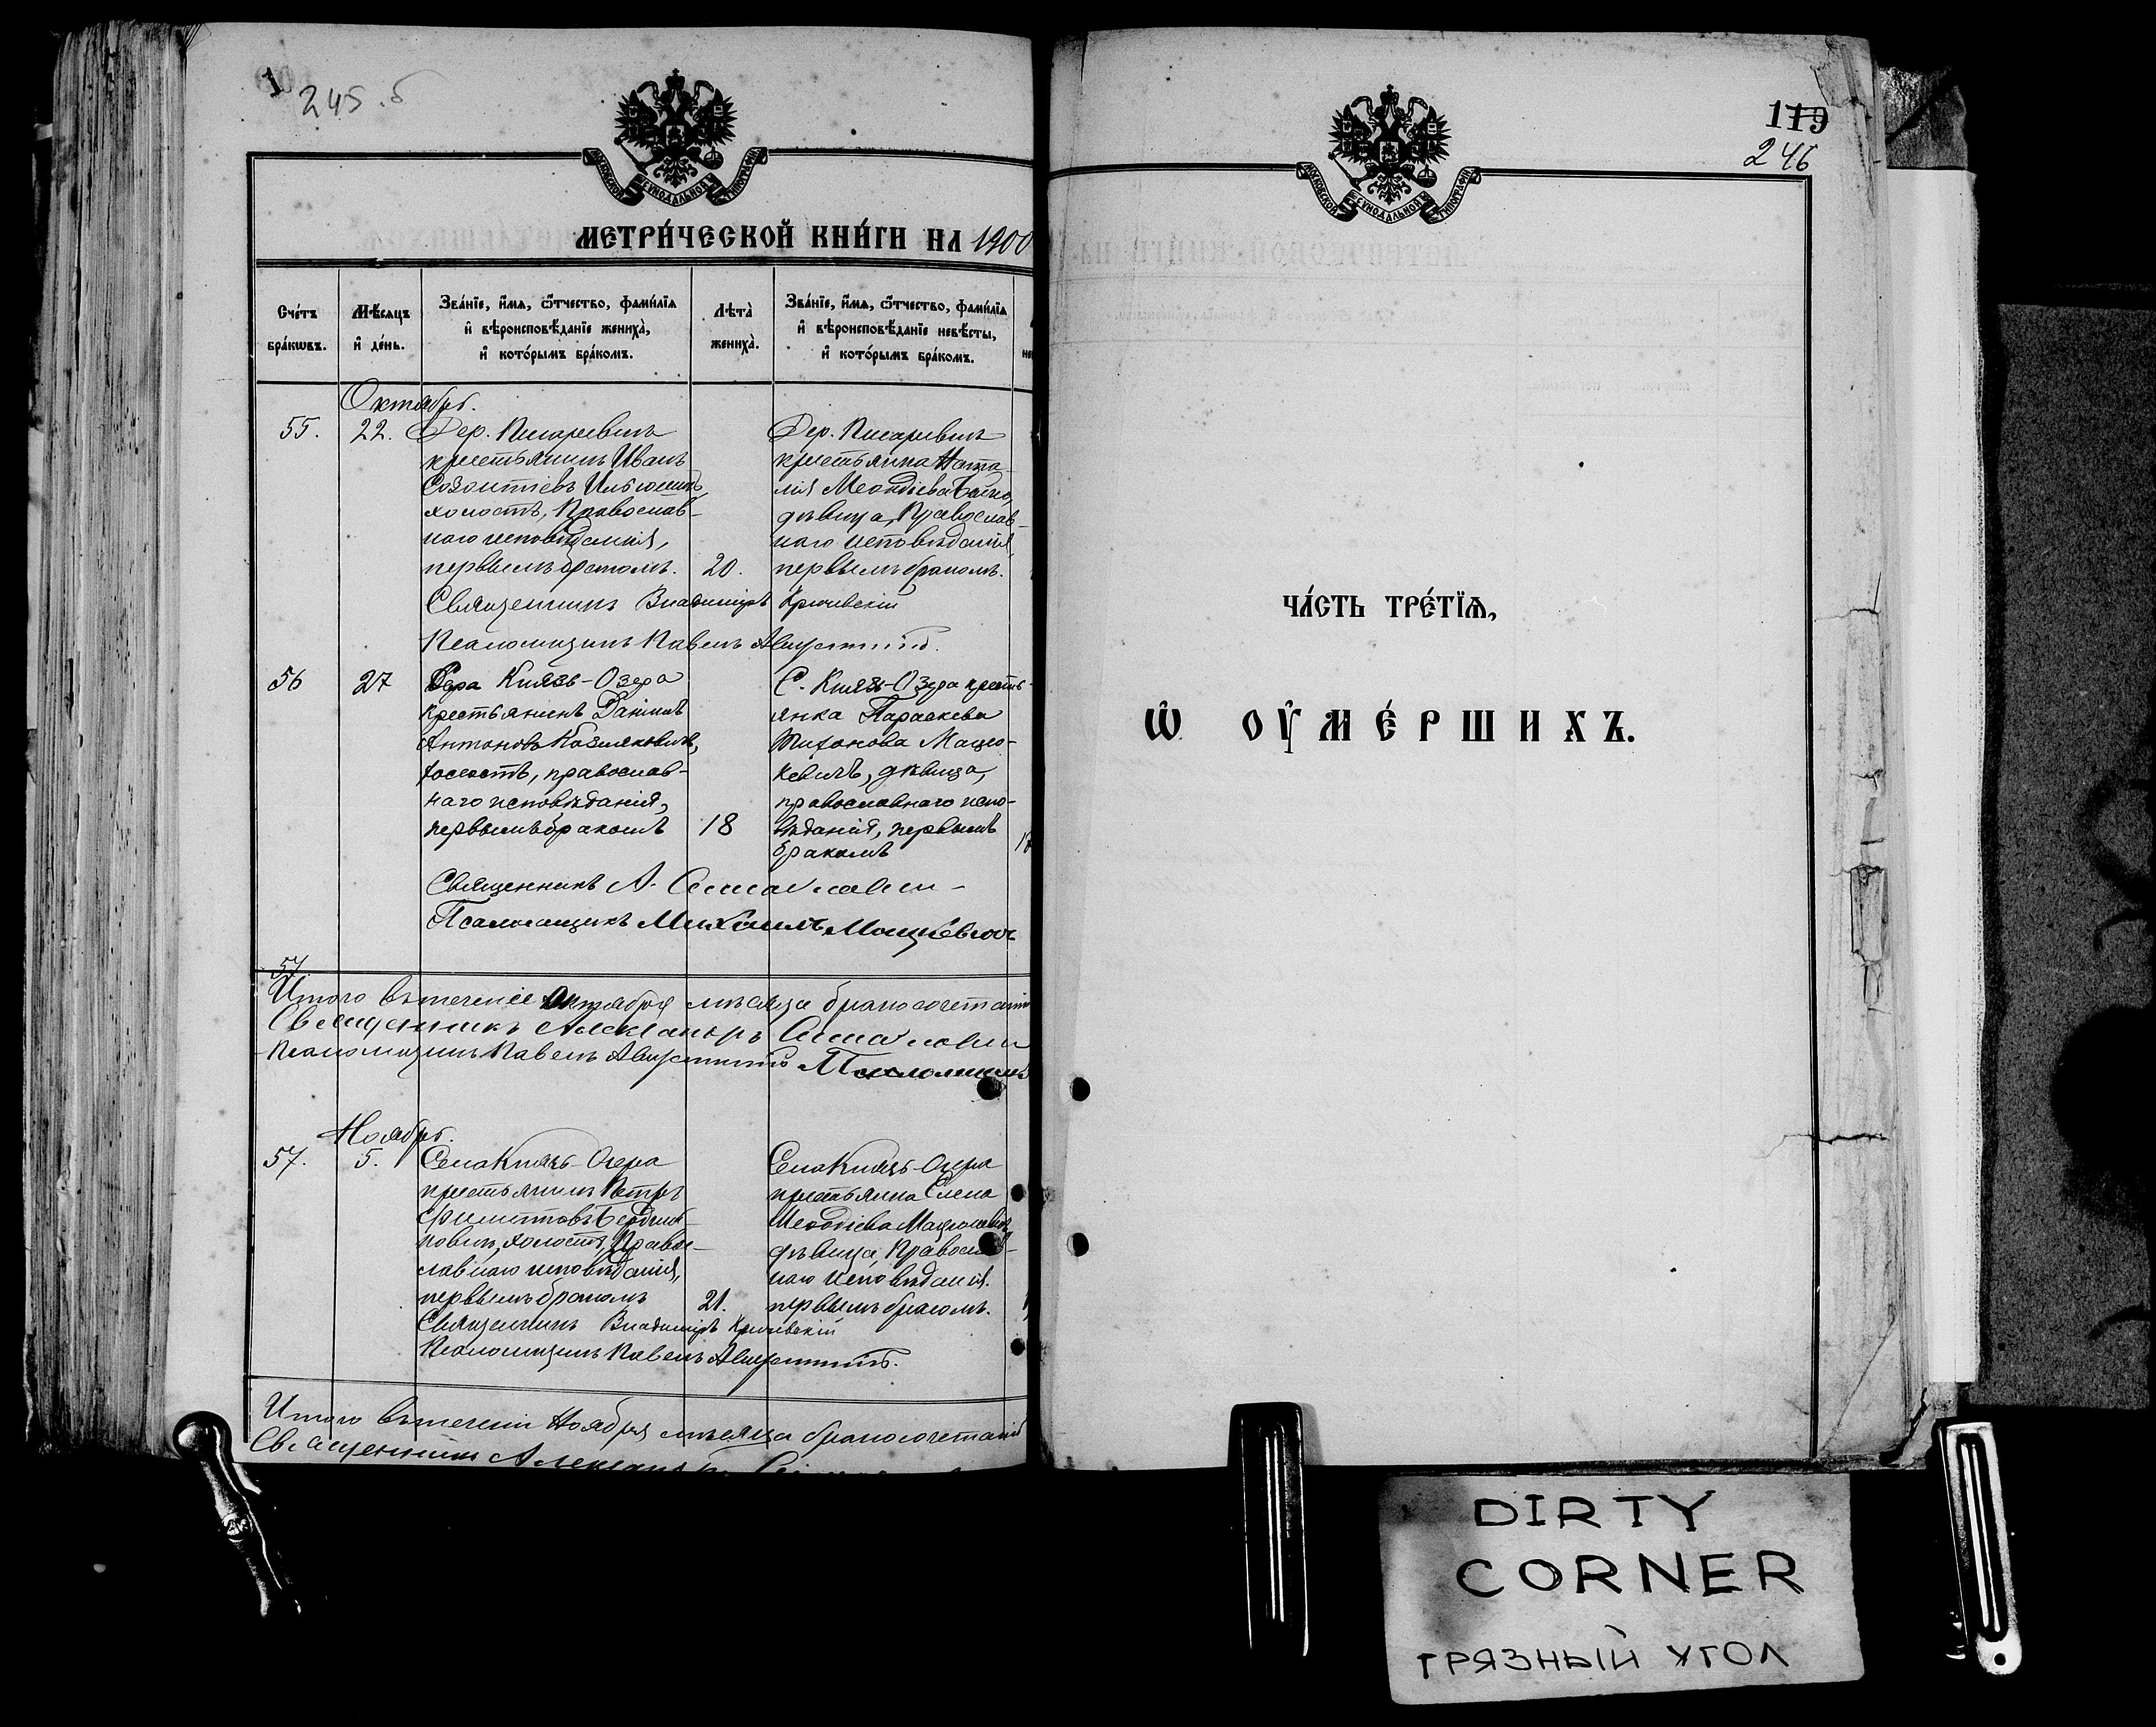 245.б
МОСКОВСКОЙ СѴНОДАЛЬНОЙ ТИПОГРАФІИ
МЕТРИ́ЧЕСКОЙ КНИ́ГИ НА 1900
Сче́тъ бра́кѡвъ.
Мѣ́сяцъ и҆ де́нь.
Зва́нїе, и҆́мѧ, ѻ҆́тчество, фами́лїѧ
и҆ вѣроисповѣ́данїе жениха̀,
и҆ кото́рымъ бра́комъ.
Лѣта̀ жениха̀.
Зва́нїе, и҆́мѧ, ѻ҆́тчество, фами́лїѧ
и҆ вѣроисповѣ́данїе невѣ́сты,
и҆ кото́рымъ бра́комъ.
Октябрь.
55.
22.
Дер. Писаревичъ
крестьянинъ Иванъ
Созонтіевъ
холостъ, Православ-
наго исповѣданія,
первымъ бракомъ.
20.
Дер. Писаревичъ
крестьянка Ната-
лія Меѳодіева
дѣвица, Православ-
наго исповѣданія
первымъ бракомъ.
Священникъ Владиміръ Кричевскій
Псаломщикъ Павелъ
56
27
Князь-Озера
крестьянинъ Даніилъ
Антоновъ Козляковичъ,
холостъ, православ-
наго исповѣданія,
первымъ бракомъ
18
С. Князь-Озера кресть-
янка Параскева
Тихонова Мацко-
кевичъ, дѣвица,
православнаго испо-
вѣданія, первымъ
бракомъ
Священникъ А.
Псаломщикъ Михаилъ Мацкевичъ
57
Итого въ теченіе Октября мѣсяца бракосочетаній
Священникъ Александръ
Псаломщикъ Павелъ Псаломщикъ
Ноябрь.
57.
5.
Села Князь-Озера
крестьянинъ Петръ
холостъ, Право-
славнаго исповѣданія,
первымъ бракомъ
21.
Села Князь-Озера
крестьянка Елена
Меѳодіева
дѣвица, Православ-
наго исповѣданія.
первымъ бракомъ.
Священникъ Владиміръ Кричевскій
Псаломщикъ Павелъ
Итого въ теченіи Ноября мѣсяца бракосочетаній
Священникъ Александръ
119
246
МОСКОВСКОЙ СѴНОДАЛЬНОЙ ТИПОГРАФІИ
ЧА́СТЬ ТРЕ́ТЇѦ,
Ѡ҆ ОУ҆МЕ́РШИХЪ.
DIRTY
CORNER
ГРЯЗНЫЙ УГОЛ